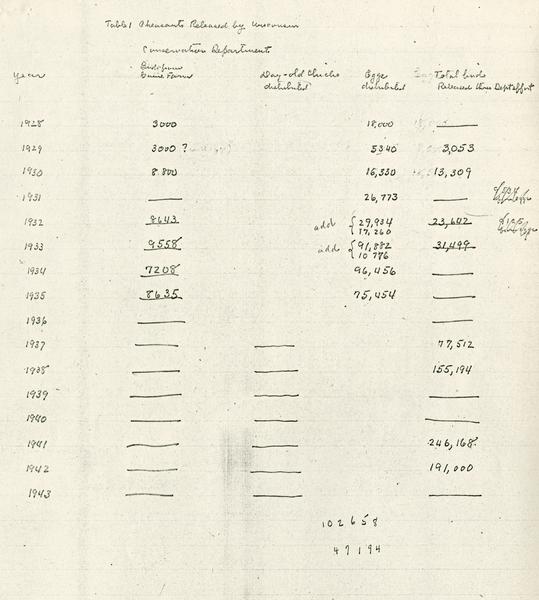 Table 1 Pheasants Released by Wisconsin
Conservation Department
Year Birds from Game Farm Day-old Chicks distributed Eggs distributed Total birds Released thru Dept effort
1928 3000 18,000 —
1929 3000 ? 5340 3,053
1930 8.800 16,330 13,309
1931 — 26,773
1932 8643 add { 29,934 23,642
17,260
1933 9558 add { 91,882 31,499
10 776
1934 7208 96,456 —
1935 8635 75,454 —
1936 — —
1937 — — 77,512
1938 — — 155,194
1939 — — —
1940 — — —
1941 — — 246,168
1942 — — 191,000
1943 — — —
102658
47194